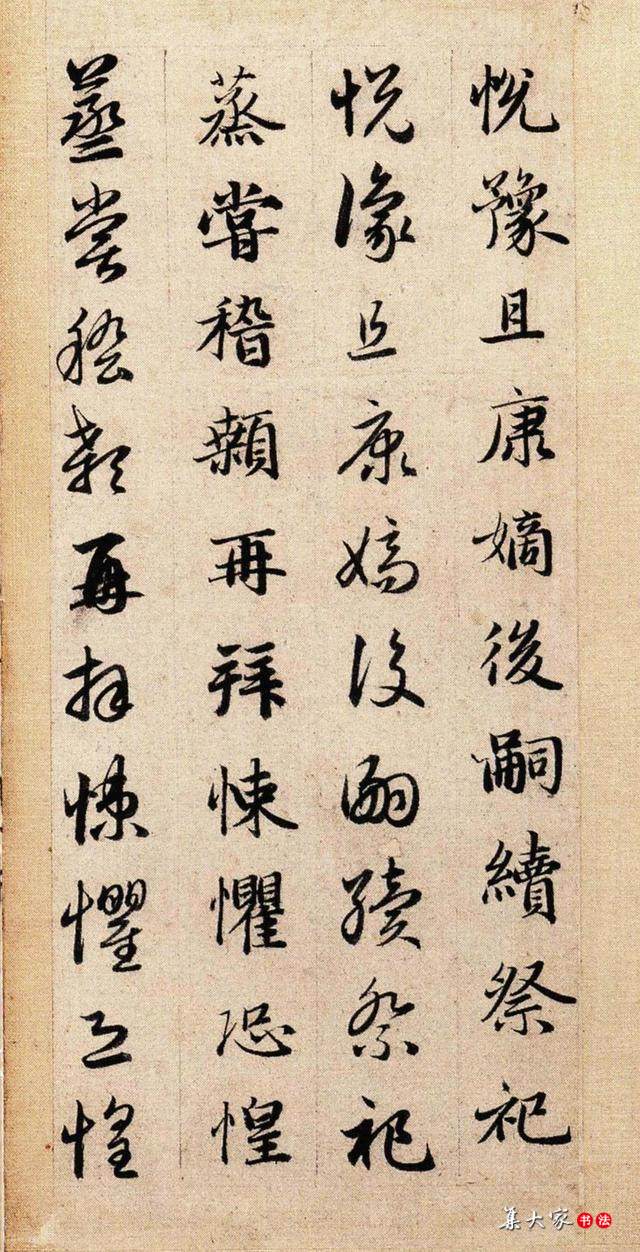 悅豫且康嫡後嗣續祭祀
悅豫且康嫡後嗣續祭祀
蒸嘗稽顙再拜悚懼恐惶
蒸嘗稽顙再拜悚懼恐惶
集大家书法